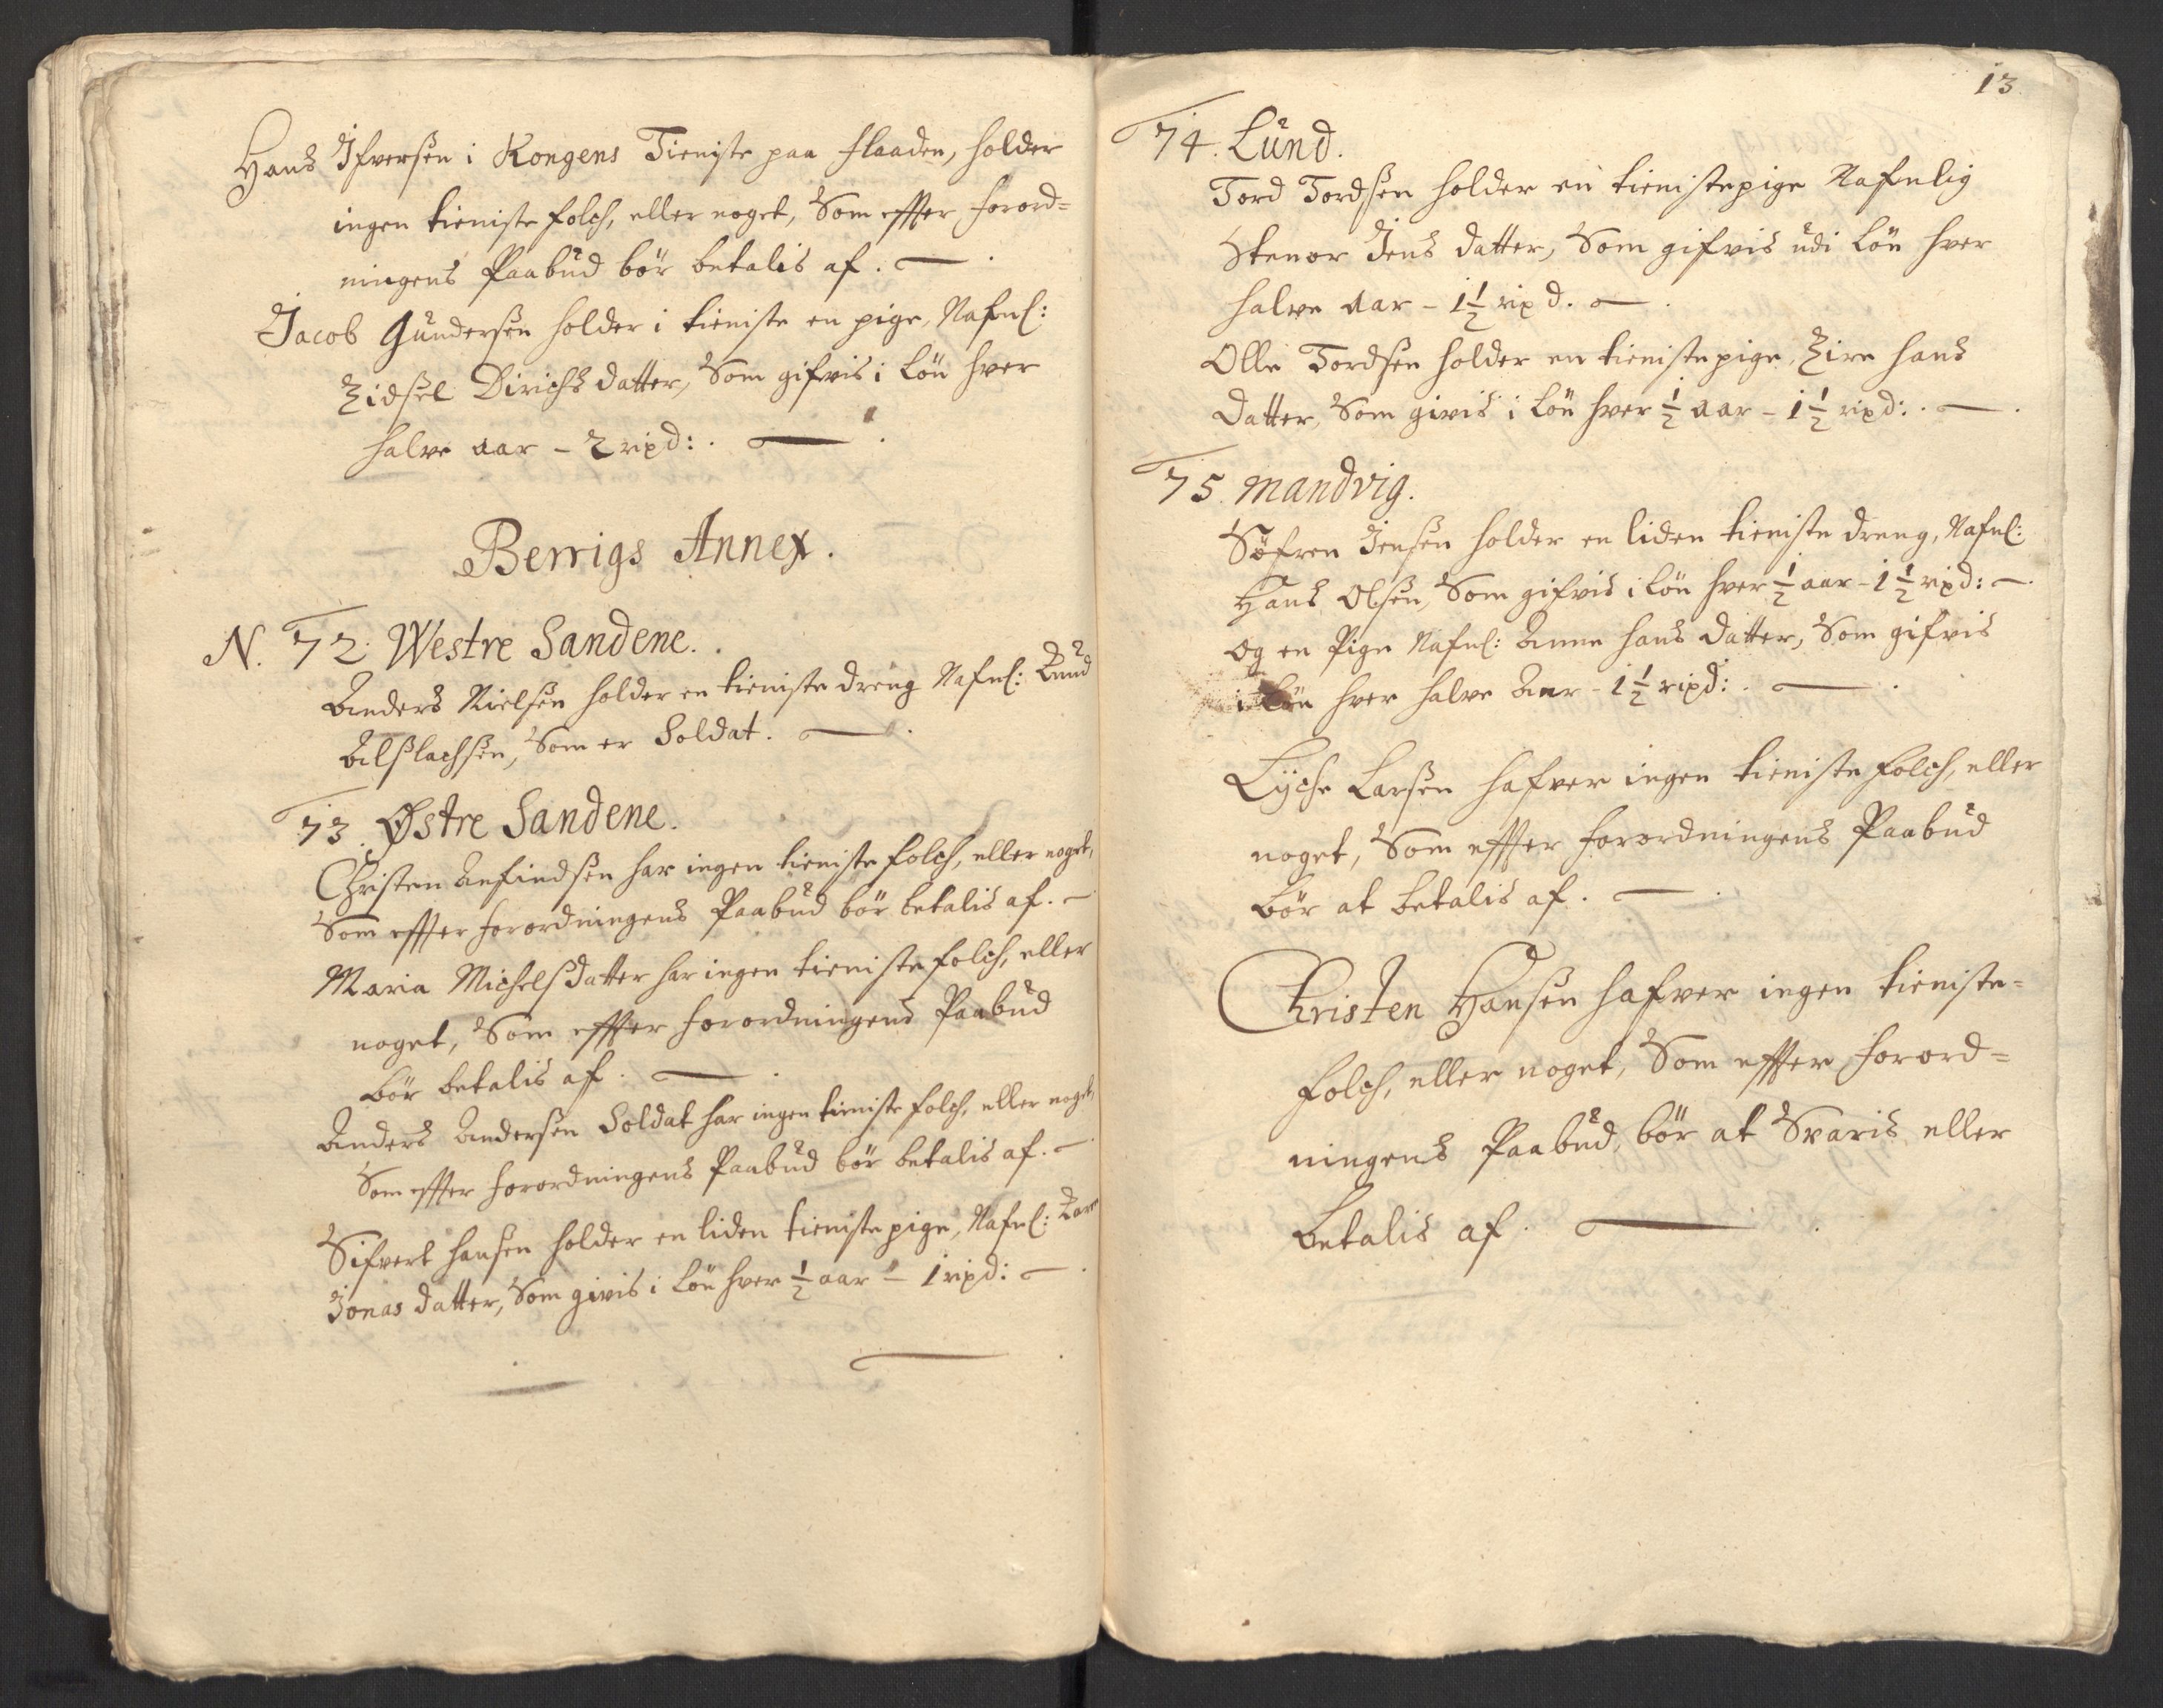 Hans Ifversen i Kongens Tieniste paa flaaden, holder
ingen tieniste folch, eller noget, Som effter forord=
ningens Paabud bør betalis af.
Jacob Gundersen holder i tieniste en pige, Nafnl:
Zidsel Dirichs datter, Som gifvis i Løn hver
halve aar - 2 rixd:.
Berrigs Annex.
N. 72. Westre Sandene.
Anders Nielsen holder en tieniste dreng Nafnl: Knud
Aslachsen, Som er Soldat.
73. Østre Sandene.
Christen Anfindsen har ingen tieniste folch, eller noget,
Som effter forordningens Paabud bør betalis af.
Maria Michelsdatter har ingen tieniste folch, eller
noget, Som effter forordningens Paabud
bør betalis af.
Anders Andersen Soldat har ingen tieniste folch, eller noget,
Som effter forordningens Paabud bør betalis af.
Sifvert hansen holder en liden tieniste pige, Nafnl: Karn
Jonas datter, Som givis i Løn hver ½ aar - 1 rixd:
13.
74. Lund.
Tord Tordsen holder en tienistepige Nafnlig
Stenor Jens datter, Som gifvis udi Løn hver
halve aar - 1½ rixd.
Olle Tordsen holder en tienistepige, Zire hans
datter, Som givis i Løn hver ½ aar - 1½ rixd:.
75. Mandvig.
Søfren Jensen holder en liden tieniste dreng, Nafnl:
Hans Olsen, Som gifvis i Løn hver ½ aar - 1½ rixd:
og en Pige Nafnl: Anne hans datter, Som gifvis
i Løn hver halve Aar - 1½ rixd:.
Lyche Larsen hafver ingen tieniste folch, eller
noget, Som effter forordningens Paabud
bør at betalis af.
Christen Hansen hafver ingen tieniste=
folch, eller noget, Som effter forord=
ningens Paabud, bør at Svaris eller
betalis af.